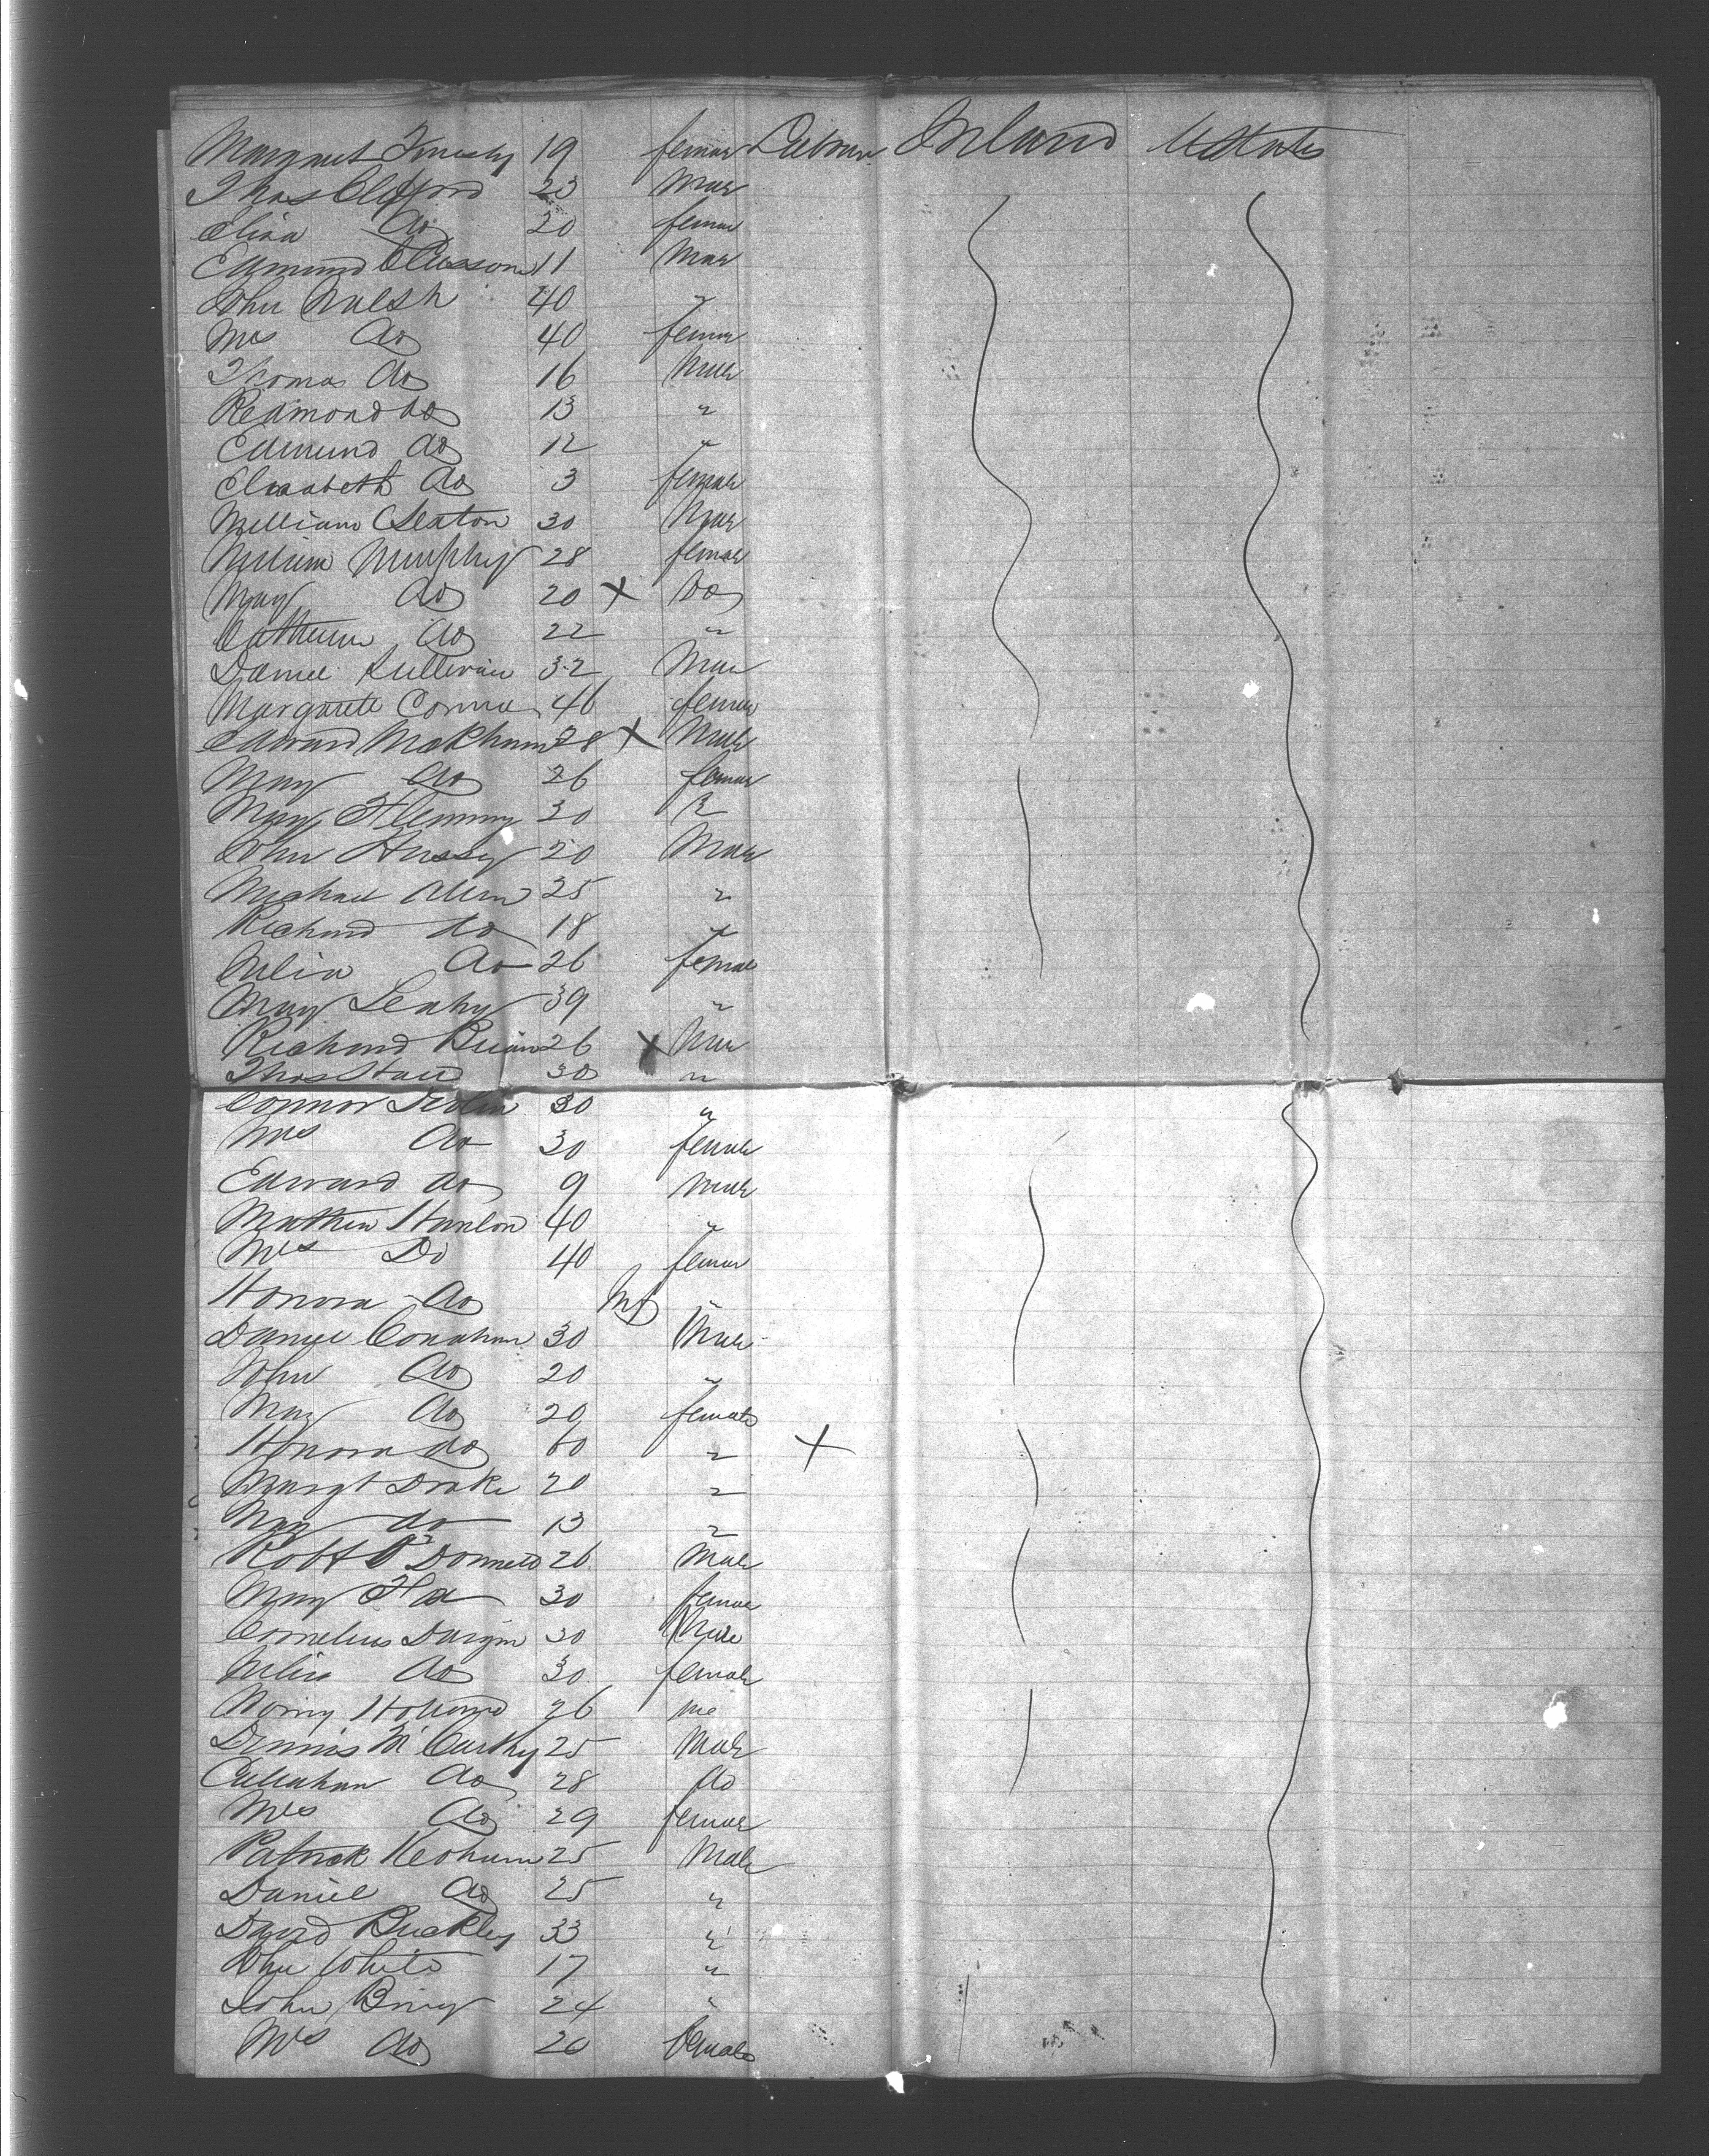 Margaret 19 female Ireland UStates
Thos Clifford 23 Male
Eliza do 20 female
Edmund 11 Male
John Walsh 40 "
Mrs do 40 female
Thomas do 16 Male
Redmond do 13 "
Edmund do 12 "
Elizabeth do 3 female
William 30 Male
Murphy 28 female
Mary do 20 X Do
Catherine do 22 "
Daniel Sullivan 32 Male
Margarett 46 female
Edward 28 X Male
Mary do 26 female
Mary Flemmg 30 "
John Hussy 20 Male
Michael Allen 25 "
Richard do 18 "
Julia do 26 female
Mary Leahy 39 "
Richard 26 X Male
Thos 30 "
Connor 30 "
Mrs do 30 female
Edward do 9 Male
Mathew Hanlon 40 "
Mrs Do 40 female
Honora do Inf "
Daniel 30 Male
John do 20 "
Mary do 20 female
Honora do 60 " X
Margt Drake 20 "
Mary do 13 "
Robt O'Donnell 26 Male
Mary 30 female
Cornelius 30 Male
Julia do 30 female
Holland 26
Dennis McCarthy 25 Male
Callahan do 28 do
Mrs do 29 female
Patrick 25 Male
Daniel do 25 "
David Buckley 33 "
John White 17 "
John 24 "
Mrs do 20 female